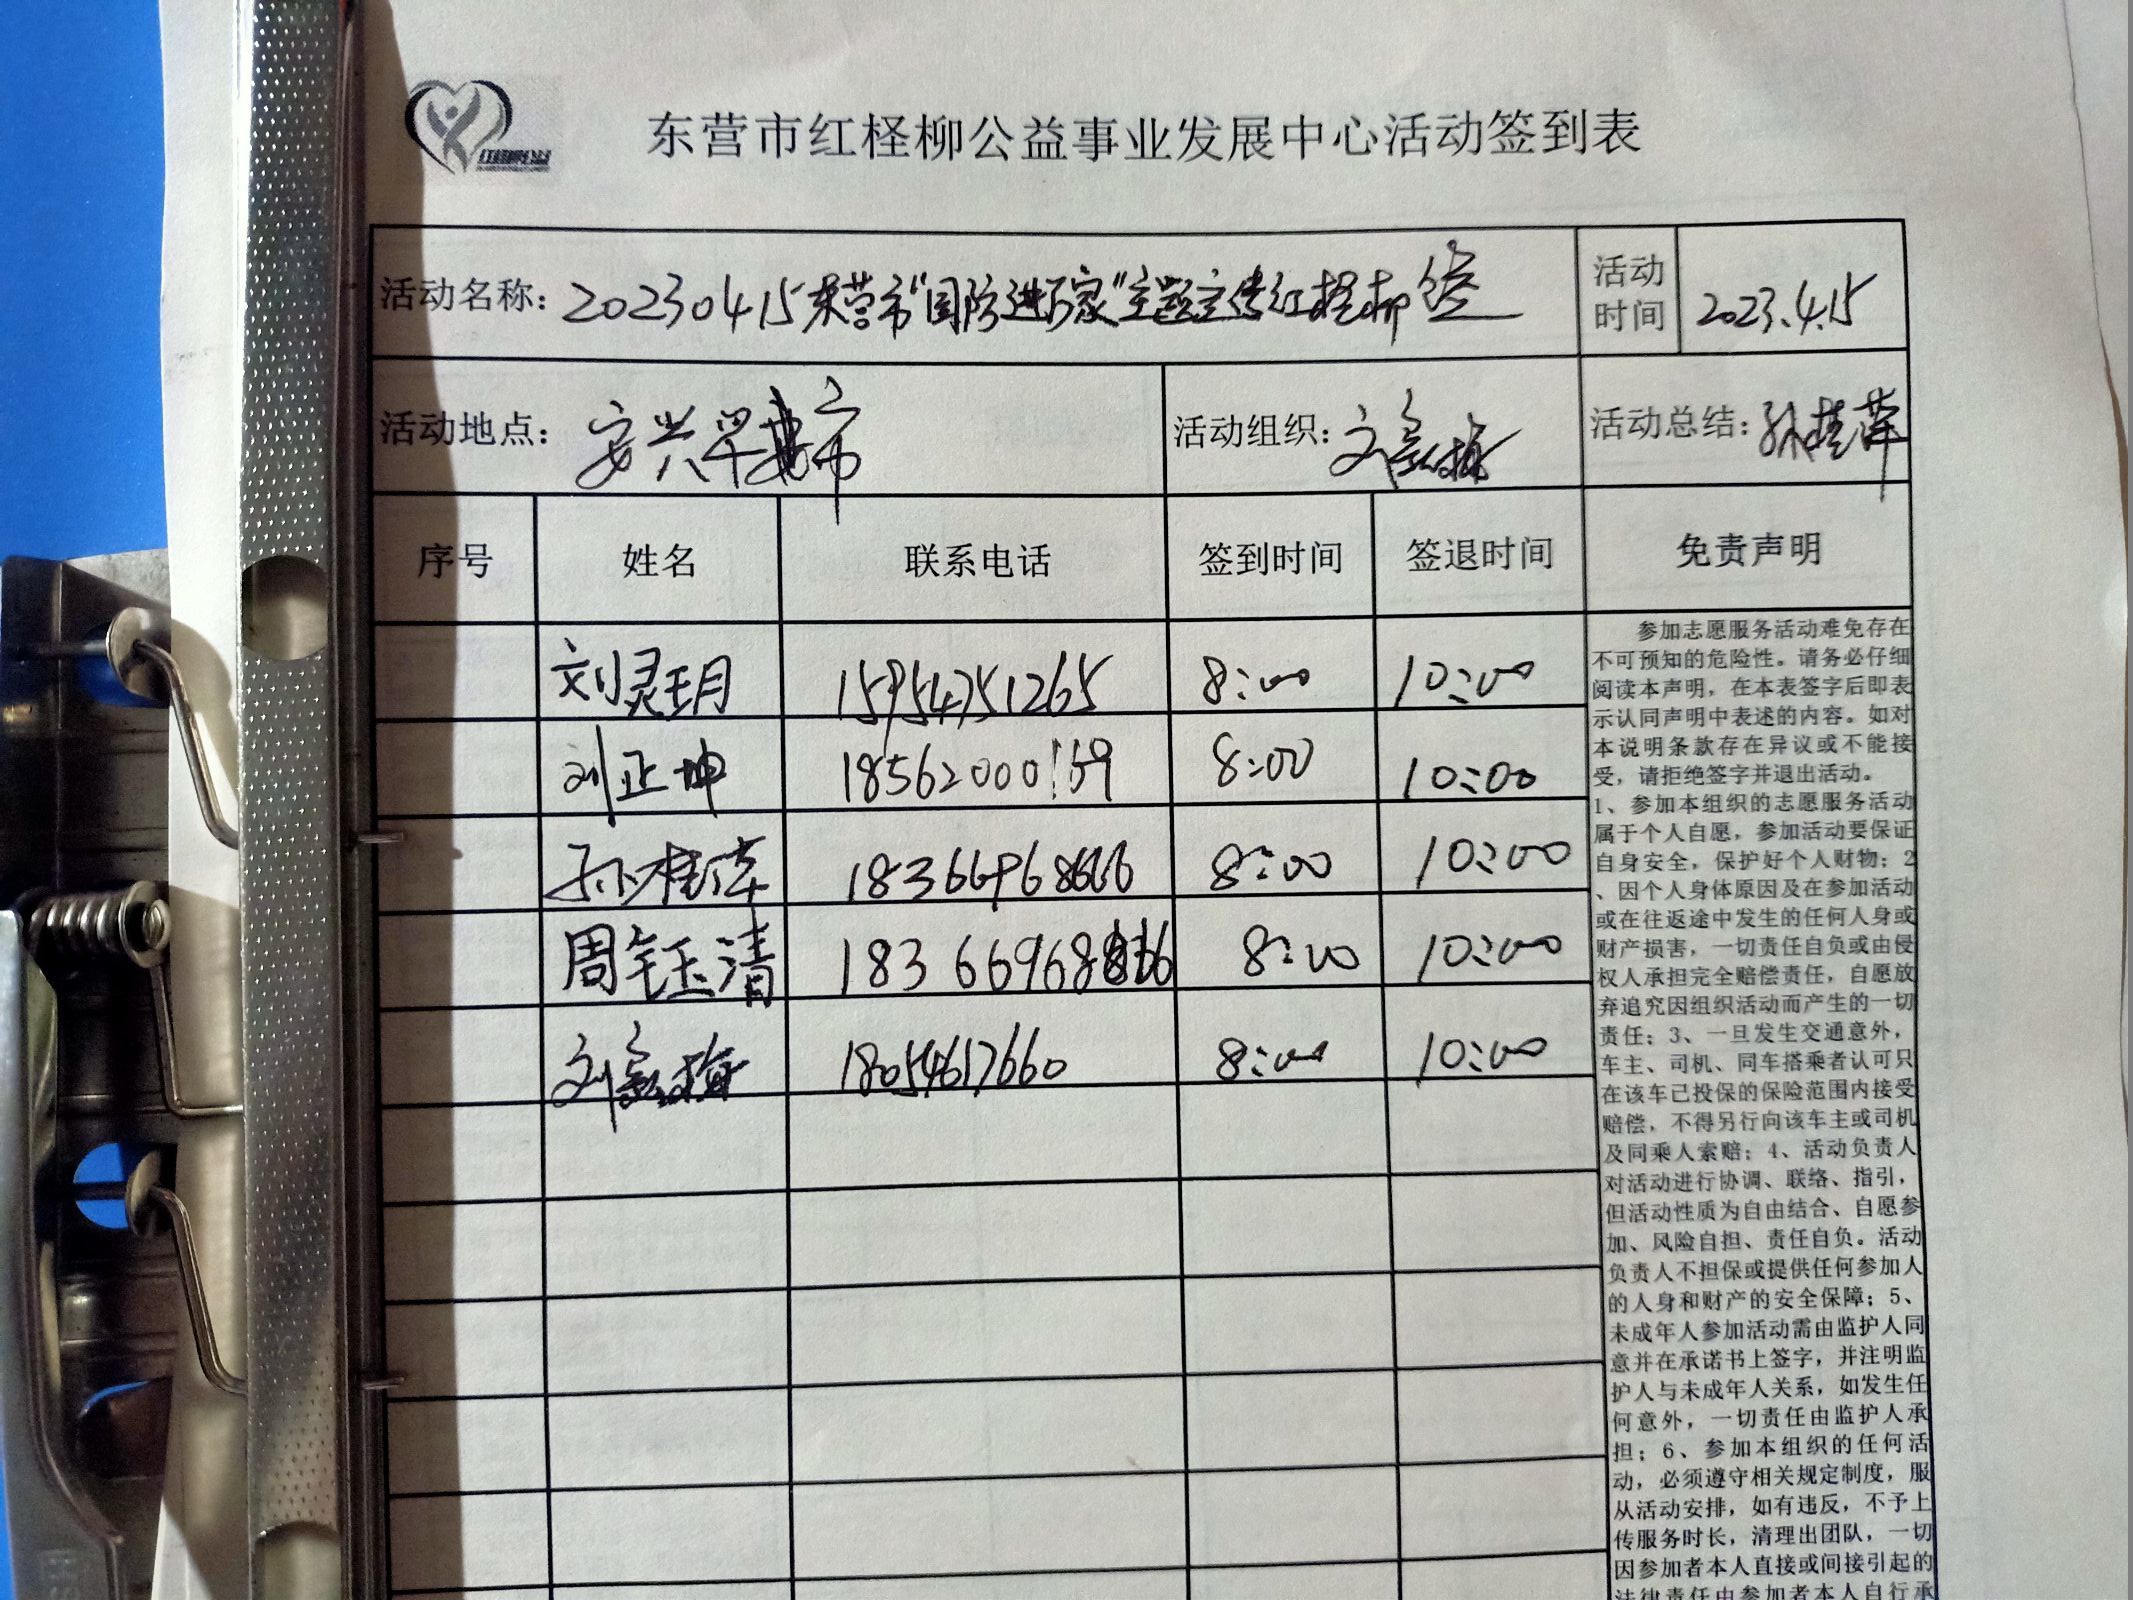 东营市红柽柳公益事业发展中心活动签到表
活动名称：20230415东营市"国防进万家"主题宣传红柽柳站
活动时间 2023.4.15
活动地点：安兴早市
活动组织：刘 梅
活动总结：孙桂萍
序号 姓名 联系电话 签到时间 签退时间 免责声明
刘灵玥 15954751265 8:00 10:00
刘正坤 18562000159 8:00 10:00
孙桂萍 18366968666 8:00 10:00
周钰清 8:00 10:00
刘 梅 18054617660 8:00 10:00
参加志愿服务活动难免存在
不可预知的危险性。请务必仔细
阅读本声明，在本表签字后即表
示认同声明中表述的内容。如对
本说明条款存在异议或不能接
受，请拒绝签字并退出活动。
1、参加本组织的志愿服务活动
属于个人自愿，参加活动要保证
自身安全，保护好个人财物；2
、因个人身体原因及在参加活动
或在往返途中发生的任何人身或
财产损害，一切责任自负或由侵
权人承担完全赔偿责任，自愿放
弃追究因组织活动而产生的一切
责任；3、一旦发生交通意外，
车主、司机、同车搭乘者认可只
在该车已投保的保险范围内接受
赔偿，不得另行向该车主或司机
及同乘人索赔；4、活动负责人
对活动进行协调、联络、指引，
但活动性质为自由结合、自愿参
加、风险自担、责任自负。活动
负责人不担保或提供任何参加人
的人身和财产的安全保障；5、
未成年人参加活动需由监护人同
意并在承诺书上签字，并注明监
护人与未成年人关系，如发生任
何意外，一切责任由监护人承
担；6、参加本组织的任何活
动，必须遵守相关规定制度，服
从活动安排，如有违反，不予上
传服务时长，清理出团队，一切
因参加者本人直接或间接引起的
法律责任由参加者本人自行承